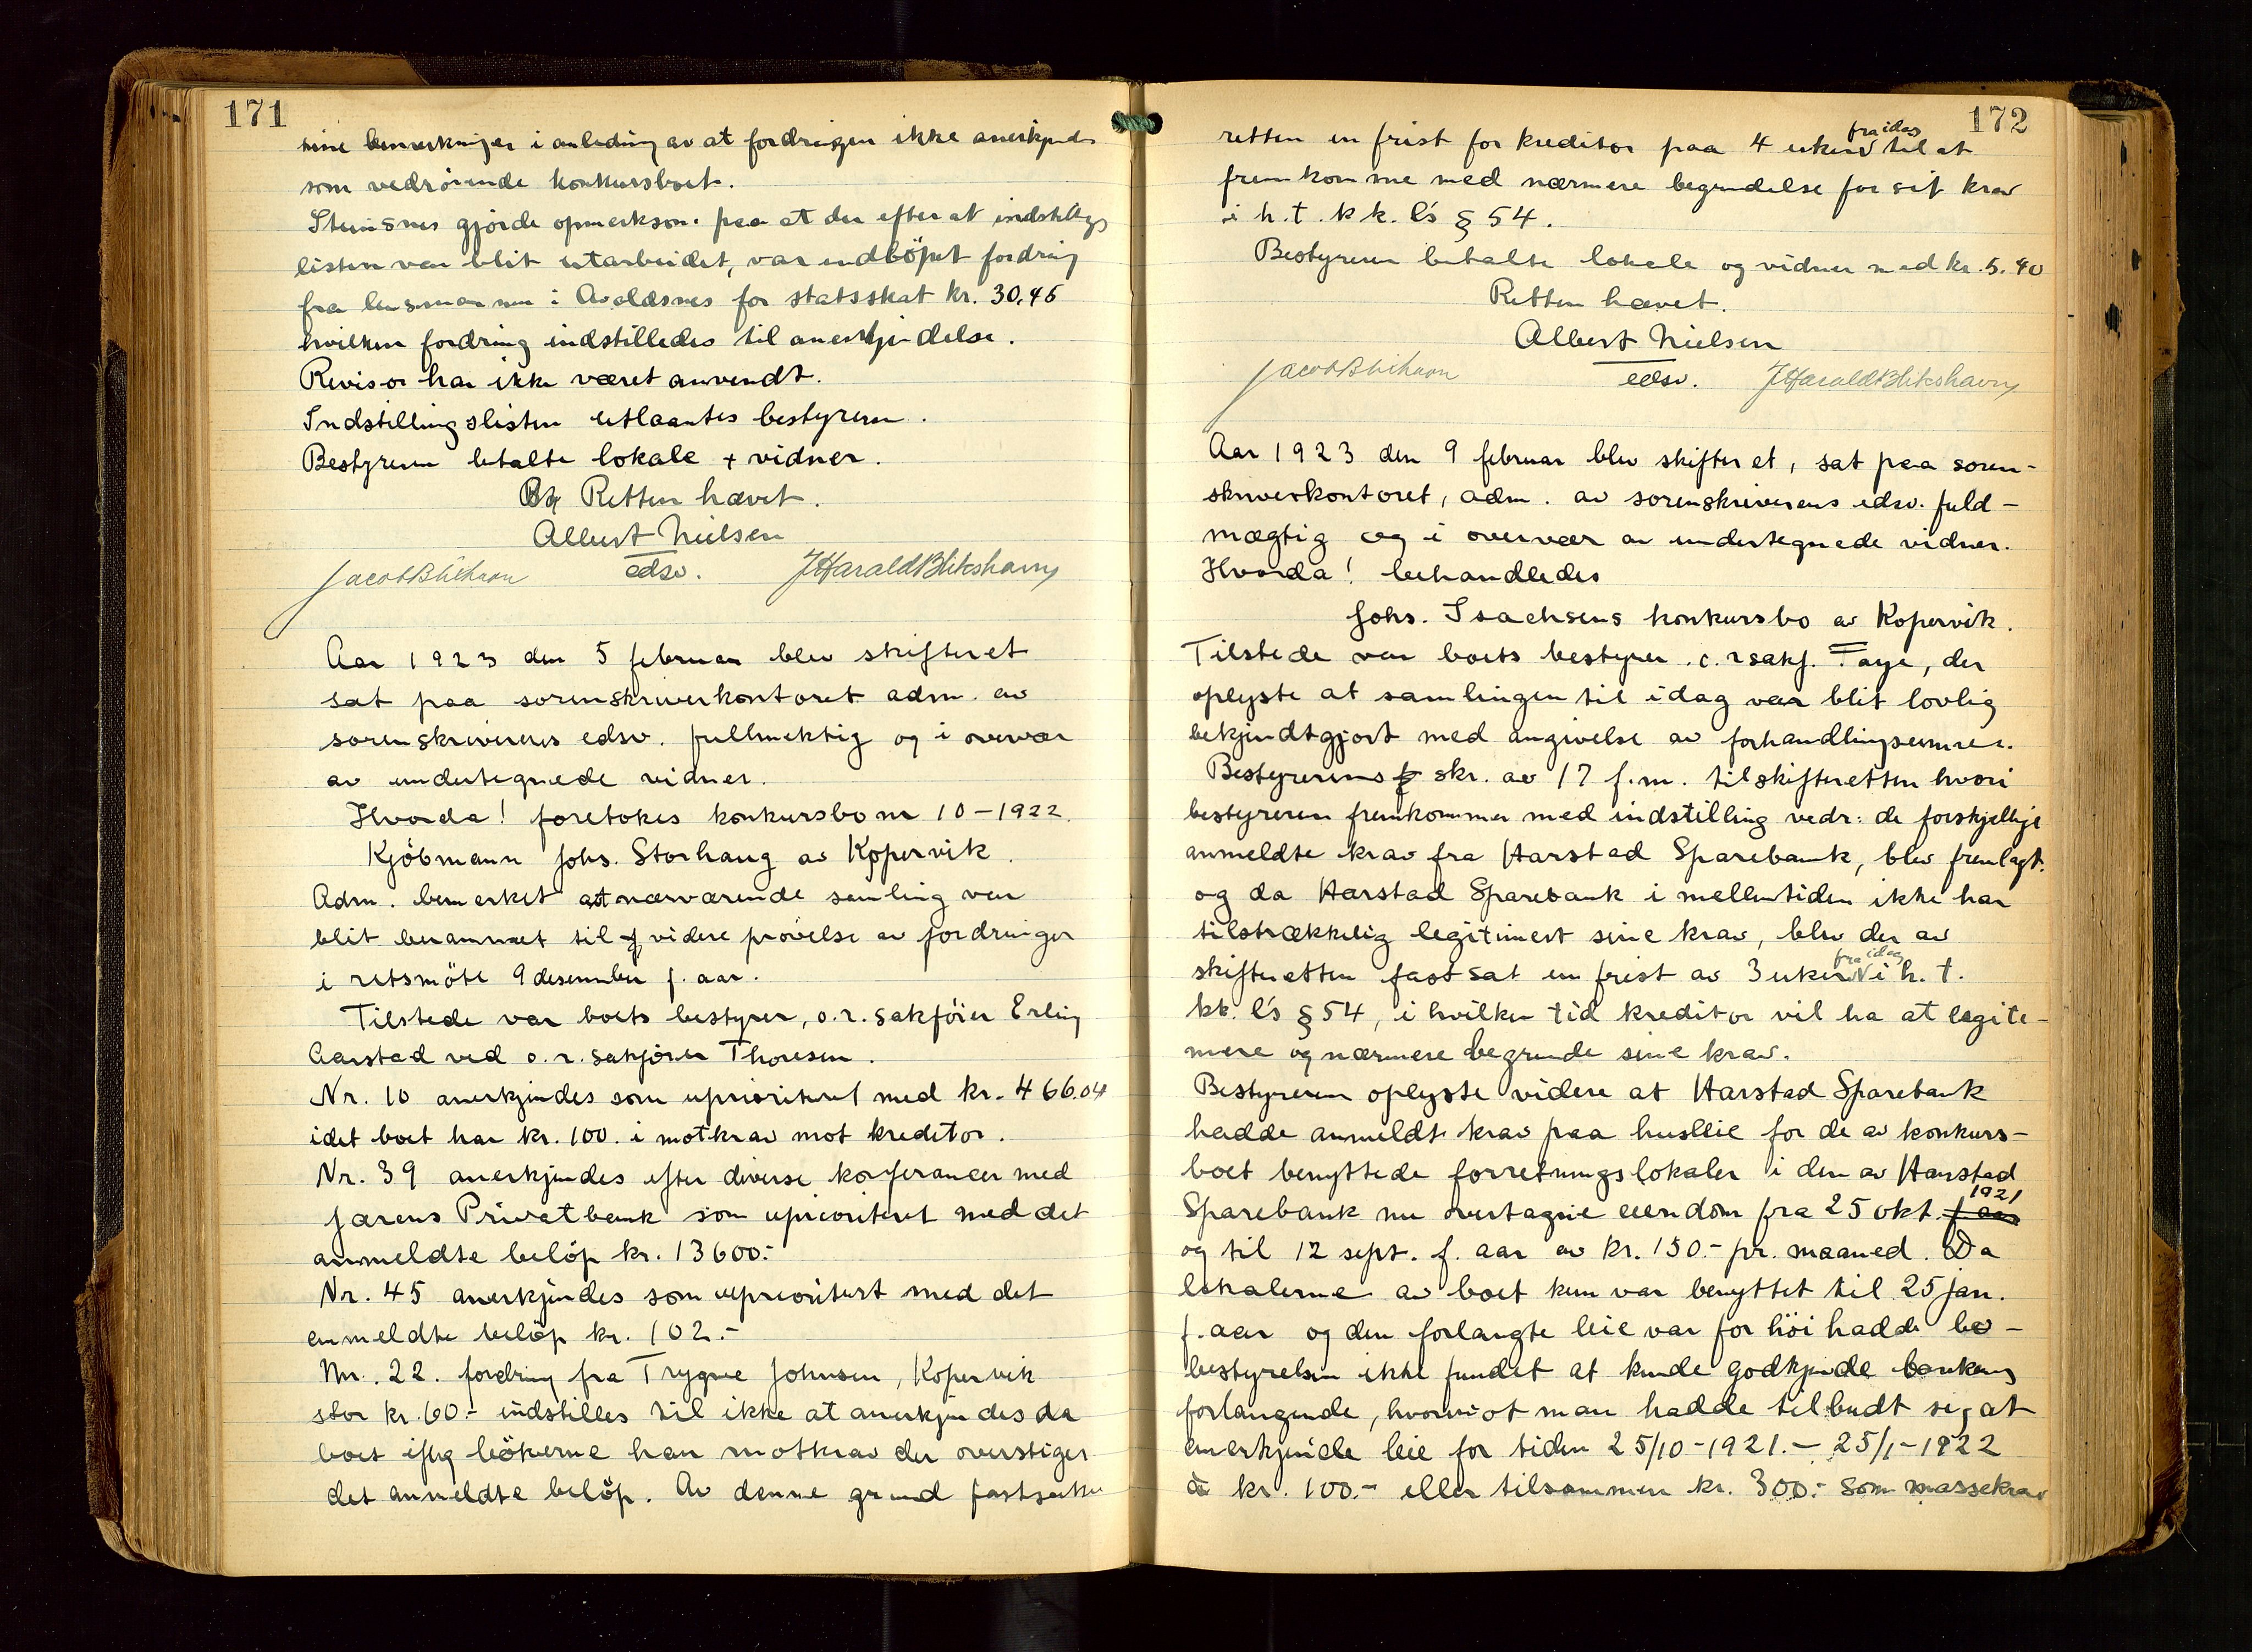 171
sine bemerkninger i anledning av at fordringen ikke anerkjendes
som vedrörende konkursboet.
Steinsnes gjorde opmerksom paa at der efter at indstillings
listen var blit utarbeidet, var indlöpet fordring
fra lensmannen i Avaldsnes for statsskat kr. 30.45
hvilken fordring indstilledes til anerkjendelse.
Revisor har ikke været anvendt.
Indstillingslisten utlaantes bestyreren.
Bestyreren betalte lokale + vidner.
Retten hævet.
Albert Nielsen
edsv.
Jacob Blikhavn J Harald Blikshavn
Aar 1923 den 5 februar blev skifteret
sat paa sorenskriverkontoret adm. av
sorenskriverens edsv. fullmektig og i overvær
av undertegnede vidner.
Hvorda! foretokes konkursbo nr 10-1922.
Kjöbmann Johs. Storhaug av Kopervik.
Adm. bemerket at nærværende samling var
blit berammet til videre prövelse av fordringer
i retsmöte 9 desember f. aar.
Tilstede var boets bestyrer, o.r.sakförer Erling
Aarstad ved o.r.sakförer Thoresen.
Nr. 10 anerkjendes som uprioritert med kr. 466.04
idet boet har kr. 100. i motkrav mot kreditor.
Nr. 39 anerkjendes efter diverse konferancer med
Jærens Privatbank som uprioritert med det
anmeldte belöp kr. 13600.-
Nr. 45 anerkjendes som uprioritert med det
anmeldte belöp kr. 102.-
Nr. 22. fordring fra Trygve Johnsen, Kopervik
stor kr. 60.- indstilles til ikke at anerkjendes da
boet iflg bökerne har motkrav der overstiger
det anmeldte belöp. Av denne grund fastsatte
172
retten en frist for kreditor paa 4 uker fra idag til at
fremkomme med nærmere begrundelse for sit krav
i h.t. kk. l's § 54.
Bestyreren betalte lokale og vidner med kr. 5.40
Retten hævet.
Albert Nielsen
Jacob Blikhavn edsv. J Harald Blikshavn
Aar 1923 den 9 februar blev skifteret, sat paa soren-
skriverkontoret, adm. av sorenskriverens edsv. fuld-
mægtig og i overvær av undertegnede vidner.
Hvorda! behandledes
Johs. Isachsens konkursbo av Kopervik.
Tilstede var boets bestyrer o.r.sakf. Faye, der
oplyste at samlingen til idag var blit lovlig
bekjendtgjort med angivelse av forhandlingsemner.
Bestyrerens skr. av 17 f.m. til skifteretten hvori
bestyreren fremkommer med indstilling vedr: de forskjellige
anmeldte krav fra Harstad Sparebank, blev fremlagt.
og da Harstad Sparebank i mellemtiden ikke har
tilstrækkelig legitimert sine krav, blev der av
skifteretten fastsat en frist av 3 uker fra idag i h.t.
kk. l's § 54, i hvilken tid kreditor vil ha at legite-
mere og nærmere begrunde sine krav.
Bestyreren oplyste videre at Harstad Sparebank
hadde anmeldt krav paa husleie for de av konkurs-
boet benyttede forretningslokaler i den av Harstad
Sparebank nu overtagne eiendom fra 25 okt. f. aar 1921
og til 12 sept. f. aar av kr. 150.- pr. maaned. Da
lokalerne av boet kun var benyttet til 25 jan.
f. aar og den forlangte leie var for höi hadde bo-
bestyrelsen ikke fundet at kunde godkjende bankens
forlangende, hvorimot man hadde tilbudt sig at
anerkjende leie for tiden 25/10-1921.- 25/1-1922
à kr. 100.- eller tilsammen kr. 300.- som massekrav